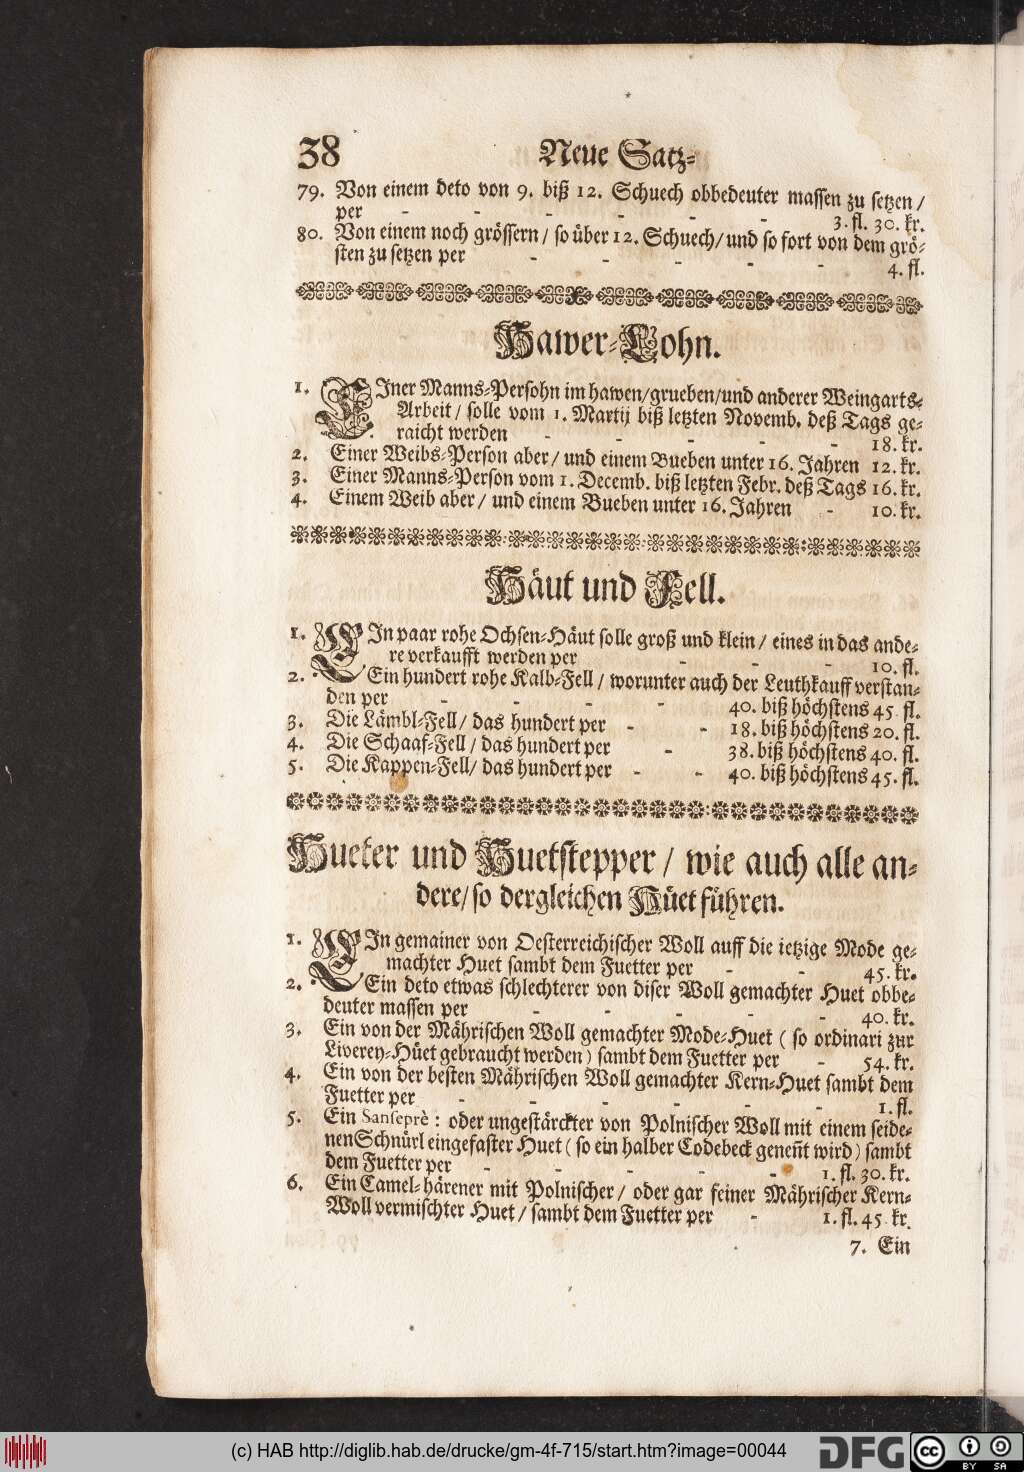 38 Neue Satz-
79. Von einem deto von 9. biß 12. Schuech obbedeuter massen zu setzen /
per - - - - - - 3. fl. 30. kr.
80. Von einem noch grössern / so über 12. Schuech / und so fort von dem grö-
sten zu setzen per - - - - - 4. fl.
Hawer-Lohn.
1. Einer Manns-Persohn im hawen / grueben / und anderer Weingarts-
Arbeit / solle vom 1. Martij biß letzten Novemb. deß Tags ge-
raicht werden - - - - - 18. kr.
2. Einer Weibs-Person aber / und einem Bueben unter 16. Jahren 12. kr.
3. Einer Manns-Person vom 1. Decemb. biß letzten Febr. deß Tags 16. kr.
4. Einem Weib aber / und einem Bueben unter 16. Jahren - 10. kr.
Häut und Fell.
1. EIn paar rohe Ochsen-Häut solle groß und klein / eines in das ande-
re verkaufft werden per - - - 10. fl.
2. Ein hundert rohe Kalb-Fell / worunter auch der Leuthkauff verstan-
den per - - - - 40. biß höchstens 45. fl.
3. Die Lämbl-Fell / das hundert per - - 18. biß höchstens 20. fl.
4. Die Schaaf-Fell / das hundert per - 38. biß höchstens 40. fl.
5. Die Kappen-Fell / das hundert per - - 40. biß höchstens 45. fl.
Hueter und Huetstepper / wie auch alle an-
dere / so dergleichen Hüet führen.
1. EIn gemainer von Oesterreichischer Woll auff die ietzige Mode ge-
machter Huet sambt dem Fuetter per - - 45. kr.
2. Ein deto etwas schlechterer von diser Woll gemachter Huet obbe-
deuter massen per - - - - - 40. kr.
3. Ein von der Mährischen Woll gemachter Mode-Huet ( so ordinari zur
Liverey-Hüet gebraucht werden ) sambt dem Fuetter per - 54. kr.
4. Ein von der besten Mährischen Woll gemachter Kern-Huet sambt dem
Fuetter per - - - - - - 1. fl.
5. Ein Sansepre : oder ungestärckter von Polnischer Woll mit einem seide-
nen Schnürl eingefaster Huet ( so ein halber Codebeck geneñt wird ) sambt
dem Fuetter per - - - - - 1. fl. 30. kr.
6. Ein Camel-härener mit Polnischer / oder gar feiner Mährischer Kern-
Woll vermischter Huet / sambt dem Fuetter per - 1. fl. 45 kr.
7. Ein
(c) HAB http://diglib.hab.de/drucke/gm-4f-715/start.htm?image=00044
DFG
cc BY SA